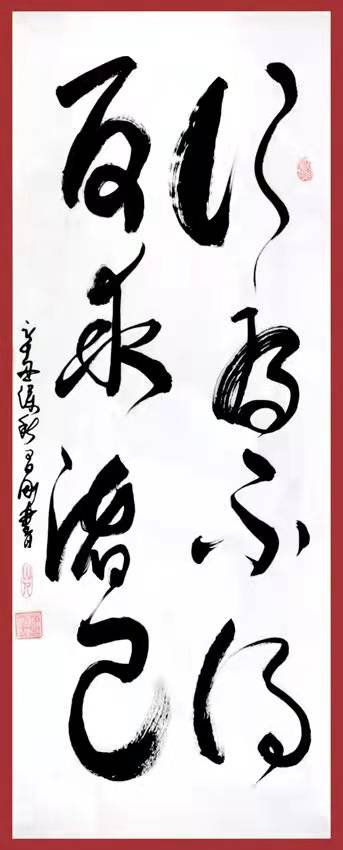 行有不得
反求諸己
辛丑深秋 書